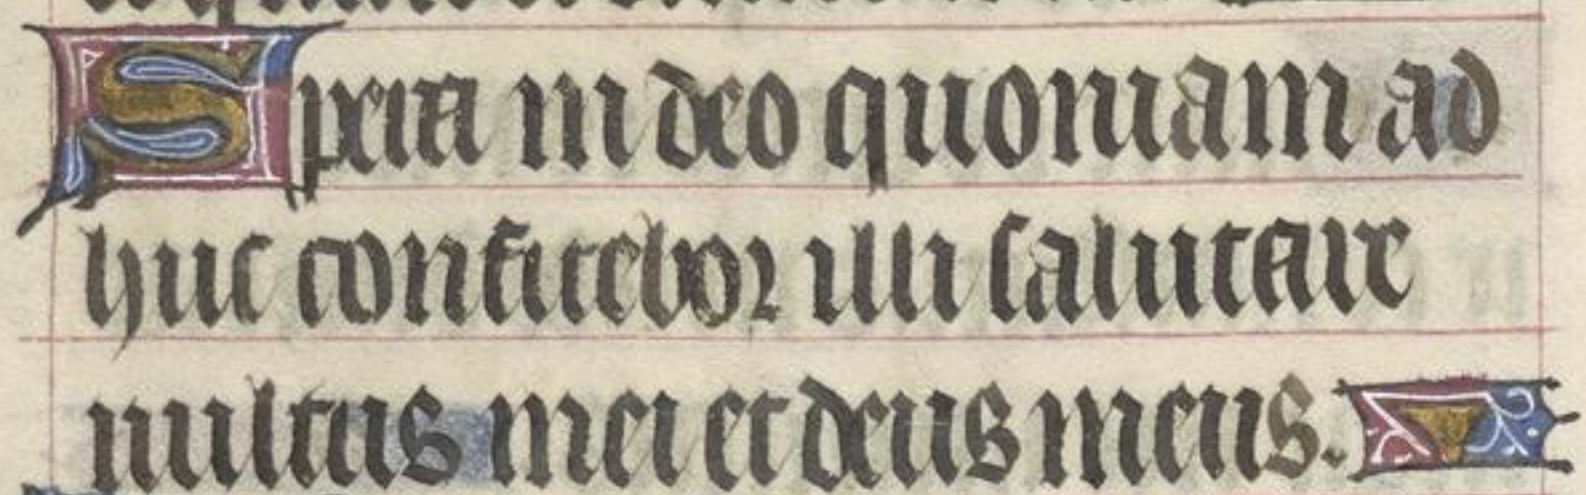 Spera in deo quoniam ad
huc confitebor illi salutare
uultus mei et deus meus.